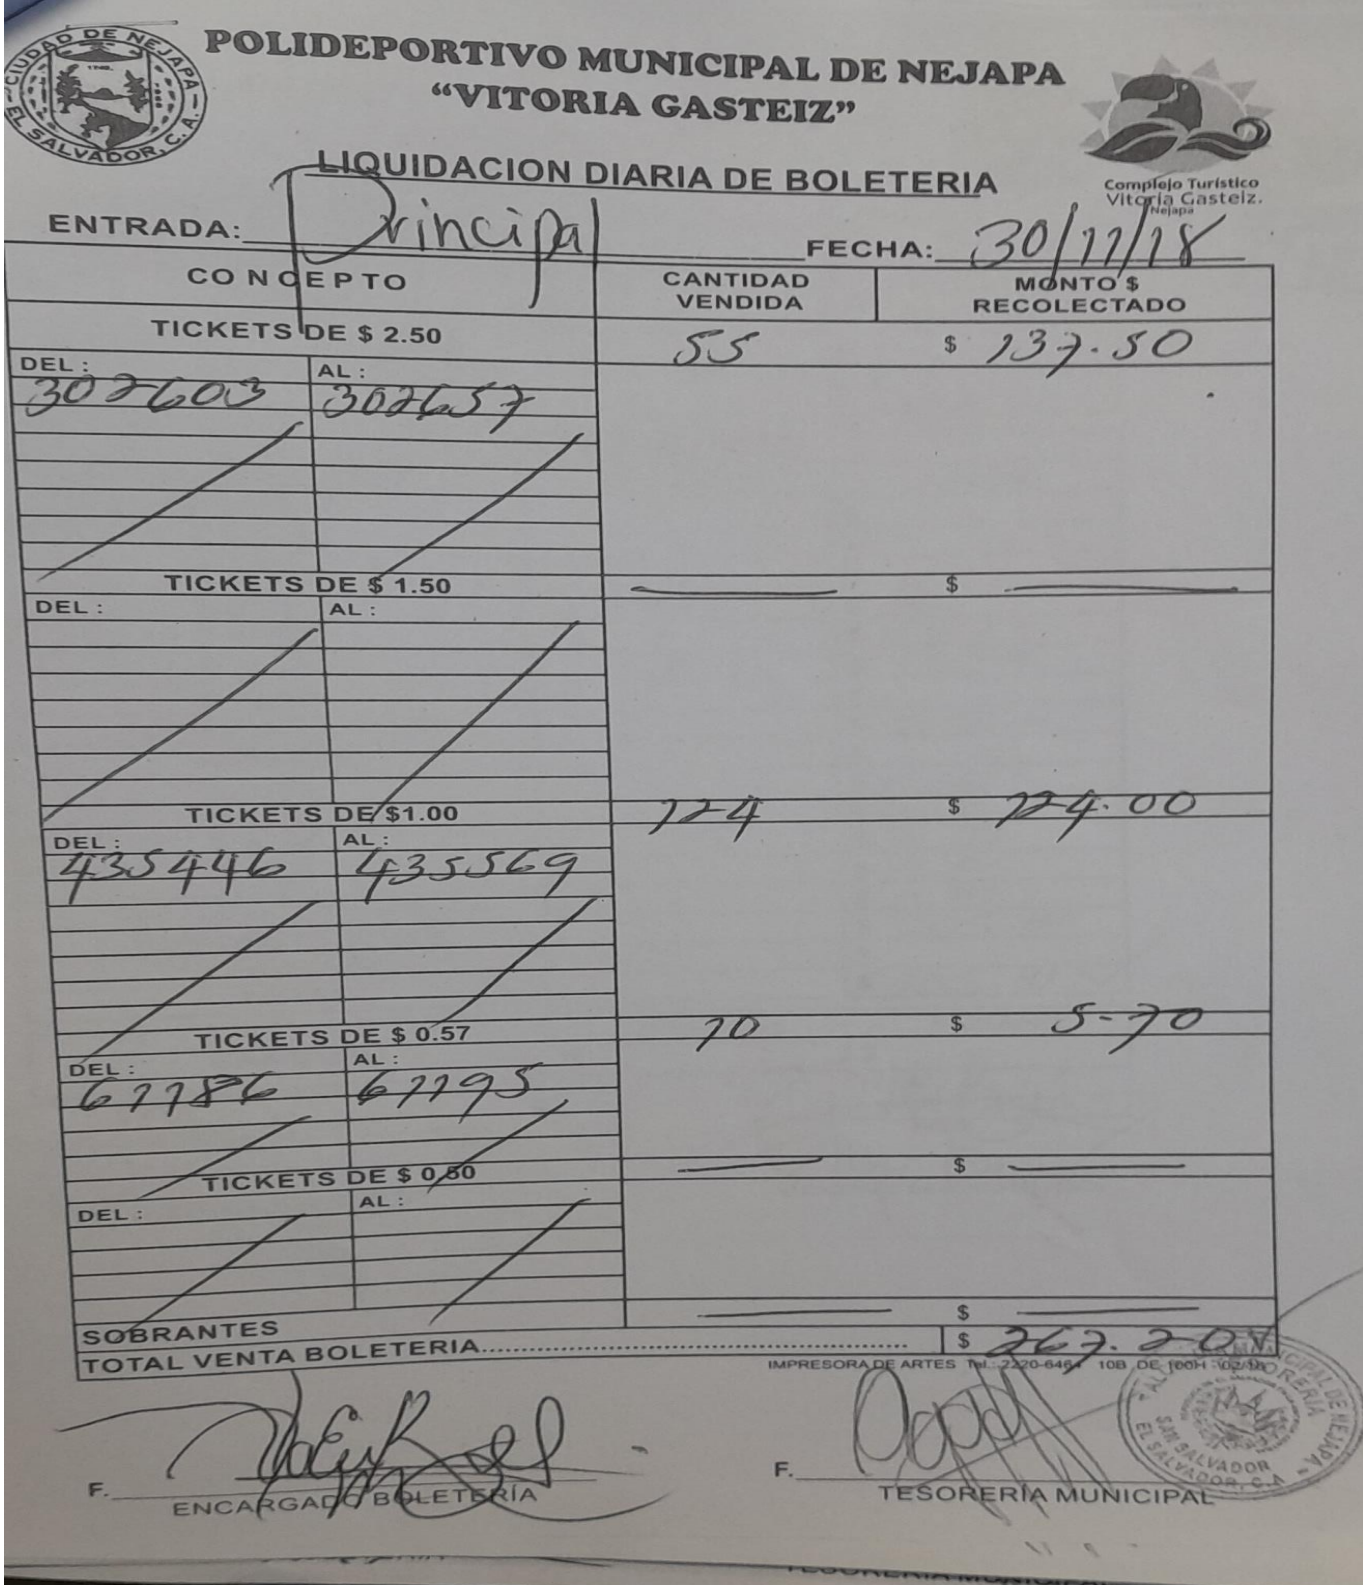 CIUDAD DE NEJAPA
EL SALVADOR, C. A.
POLIDEPORTIVO MUNICIPAL DE NEJAPA
“VITORIA GASTEIZ”
Complejo Turístico
Vitoria Gasteiz.
Nejapa
LIQUIDACION DIARIA DE BOLETERIA
ENTRADA: Principal FECHA: 30/11/18
CONCEPTO CANTIDAD VENDIDA MONTO $ RECOLECTADO
TICKETS DE $ 2.50 55 $ 137.50
DEL : AL :
302603 302657
TICKETS DE $ 1.50 $
DEL : AL :
TICKETS DE $1.00 124 $ 124.00
DEL : AL :
435446 435569
TICKETS DE $ 0.57 10 $ 5-70
DEL : AL :
61186 61195
TICKETS DE $ 0.50 $
DEL : AL :
SOBRANTES $
TOTAL VENTA BOLETERIA.......... $ 267.20
IMPRESORA DE ARTES Tel.: 2220-6464 10B DE 100H
F.
ENCARGADO BOLETERÍA
F.
TESORERÍA MUNICIPAL
SAN SALVADOR
EL SALVADOR, C.A.